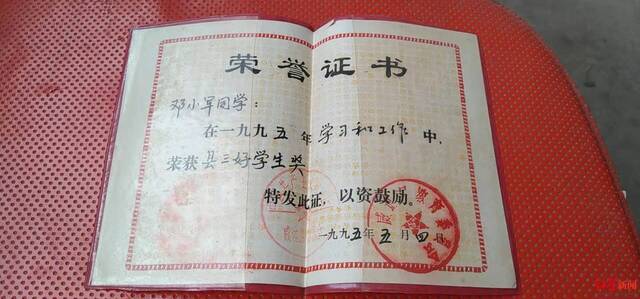 荣誉证书
邓小军同学：
在一九九五年学习和工作中，
荣获县三好学生奖
特发此证，以资鼓励。
一九九五年五月四日
新闻